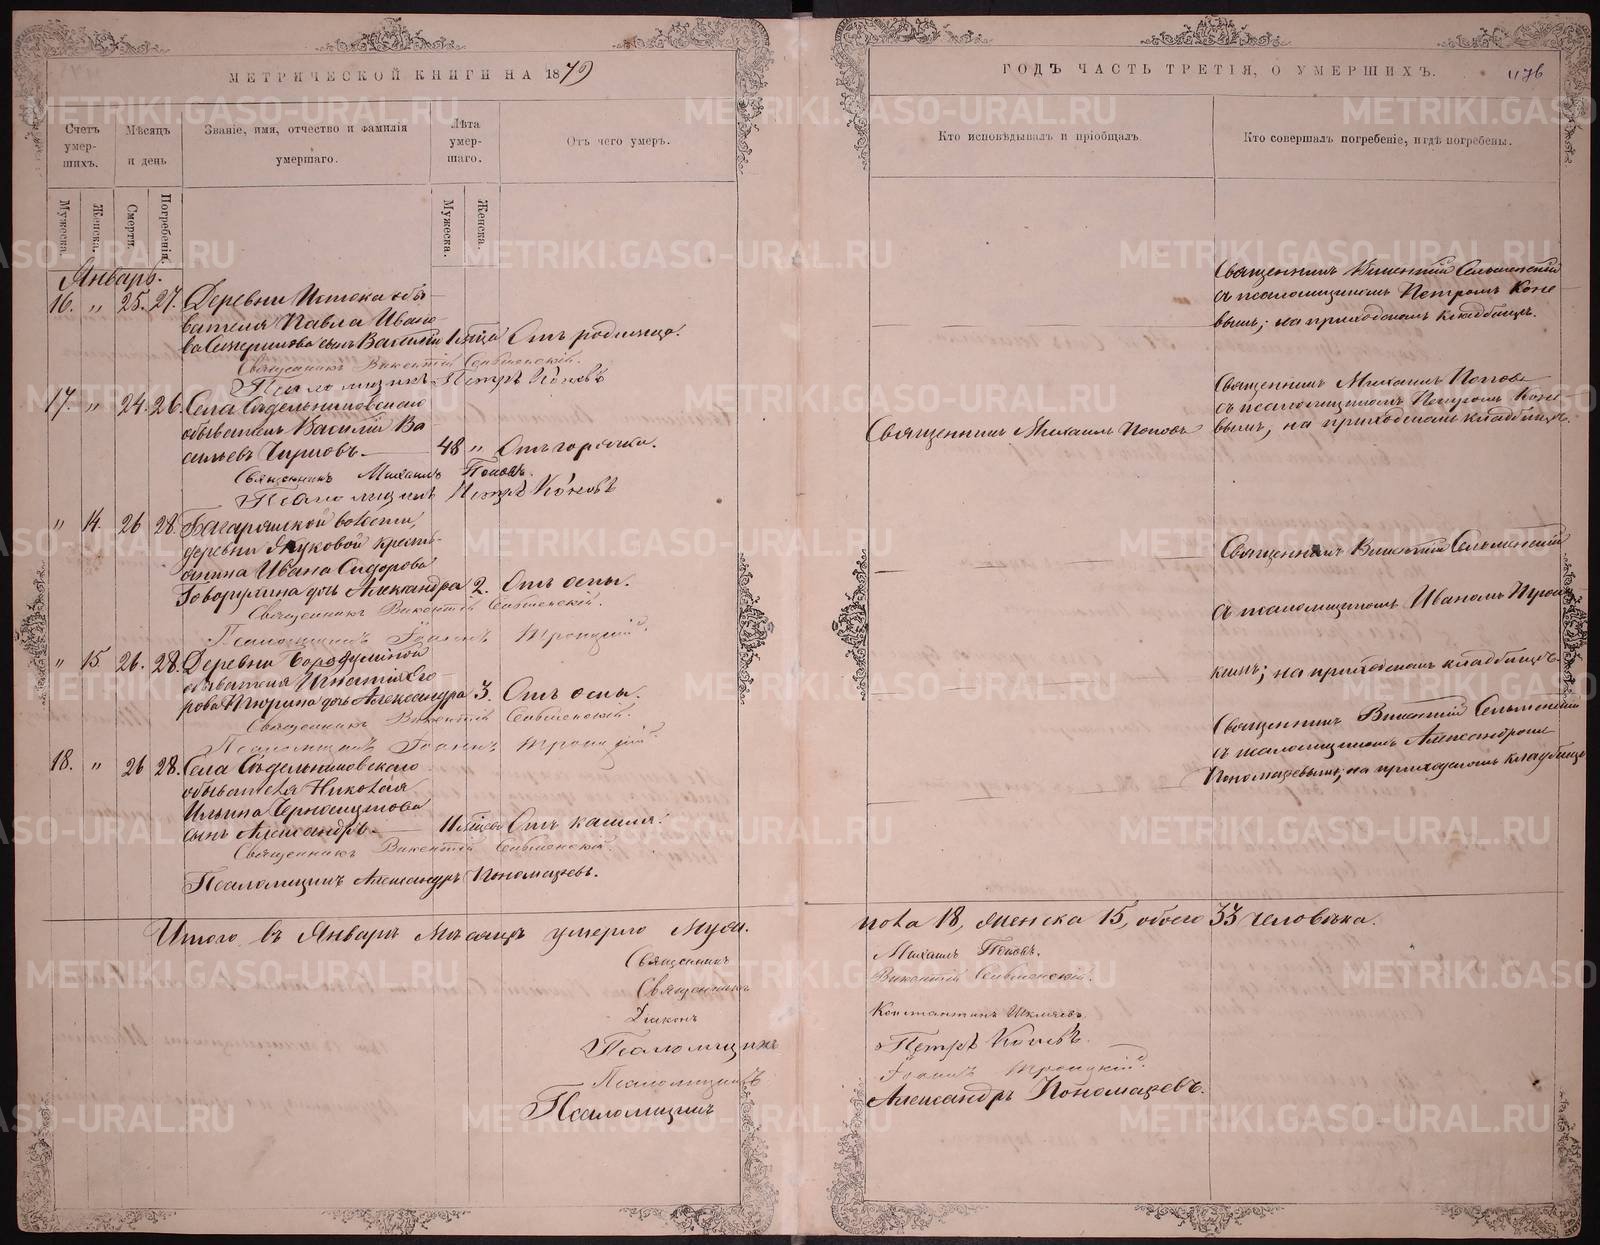 МЕТРИЧЕСКОЙ КНИГИ НА 1879
Счетъ умер-шихъ.
Мѣсяцъ и день
Званіе, имя, отчество и фамилія умершаго.
Лѣта умер-шаго.
Отъ чего умеръ.
Мужеска.
Женска.
Смерти.
Погребенія.
Мужеска.
Женска.
Январь.
16. " 25. 27. Деревни Истока обы-
вателя Павла Ивано-
ва сынъ Василій 1 мѣсяца Отъ родимца.
Священникъ Викентій Сельменскій.
Псаломщикъ Петръ Коневъ
17. " 24. 26. Села Сѣдельниковскаго
обыватель Василій Ва-
сильевъ Чирковъ. 48 " Отъ горячки.
Священникъ Михаилъ Поповъ.
Псаломщикъ Петръ Коневъ
" 14. 26 28. Багарякской волости,
деревни Жуковой кресть-
янина Ивана Сидорова
дочь Александра 2. Отъ оспы.
Священникъ Викентій Сельменскій.
Псаломщикъ Іоаннъ Троицкій.
" 15. 26. 28. Деревни
обывателя Игнатія Его
рова дочь Александра 3. Отъ оспы.
Священникъ Викентій Сельменскій.
Псаломщикъ Іоаннъ Троицкій.
18. " 26 28. Села Сѣдельниковскаго
обывателя Николая
Ильина Черноскутова
сынъ Александръ. Отъ кашля.
Священникъ Викентій Сельменскій.
Псаломщикъ Александръ Пономаревъ.
Итого въ Январѣ Мѣсяцѣ умерло Муже.
Священникъ
Священникъ
Діаконъ
Псаломщикъ
Псаломщикъ
Псаломщикъ
ГОДЪ ЧАСТЬ ТРЕТІЯ, О УМЕРШИХЪ.
Кто исповѣдывалъ и пріобщалъ.
Кто совершалъ погребеніе, и гдѣ погребены.
Священникъ Викентій Сельменскій
съ псаломщикомъ Петромъ Коне-
вымъ; на приходскомъ кладбищѣ.
Священникъ Михаилъ Поповъ
Священникъ Михаилъ Поповъ
съ псаломщикомъ Петромъ Коне-
вымъ, на приходскомъ кладбищѣ.
Священникъ Викентій Сельменскій
съ псаломщикомъ Иваномъ Трои
кимъ; на приходскомъ кладбищѣ
Священникъ Викентій Сельменскій
съ псаломщикомъ Александромъ
Пономаревымъ; на приходскомъ кладбищѣ
пола 18, женска 15, обоего 33 человѣка.
Михаилъ Поповъ.
Викентій Сельменскій.
Константинъ
Петръ Коневъ.
Іоаннъ Троицкій.
Александръ Пономаревъ.
METRIKI.GASO-URAL.RU